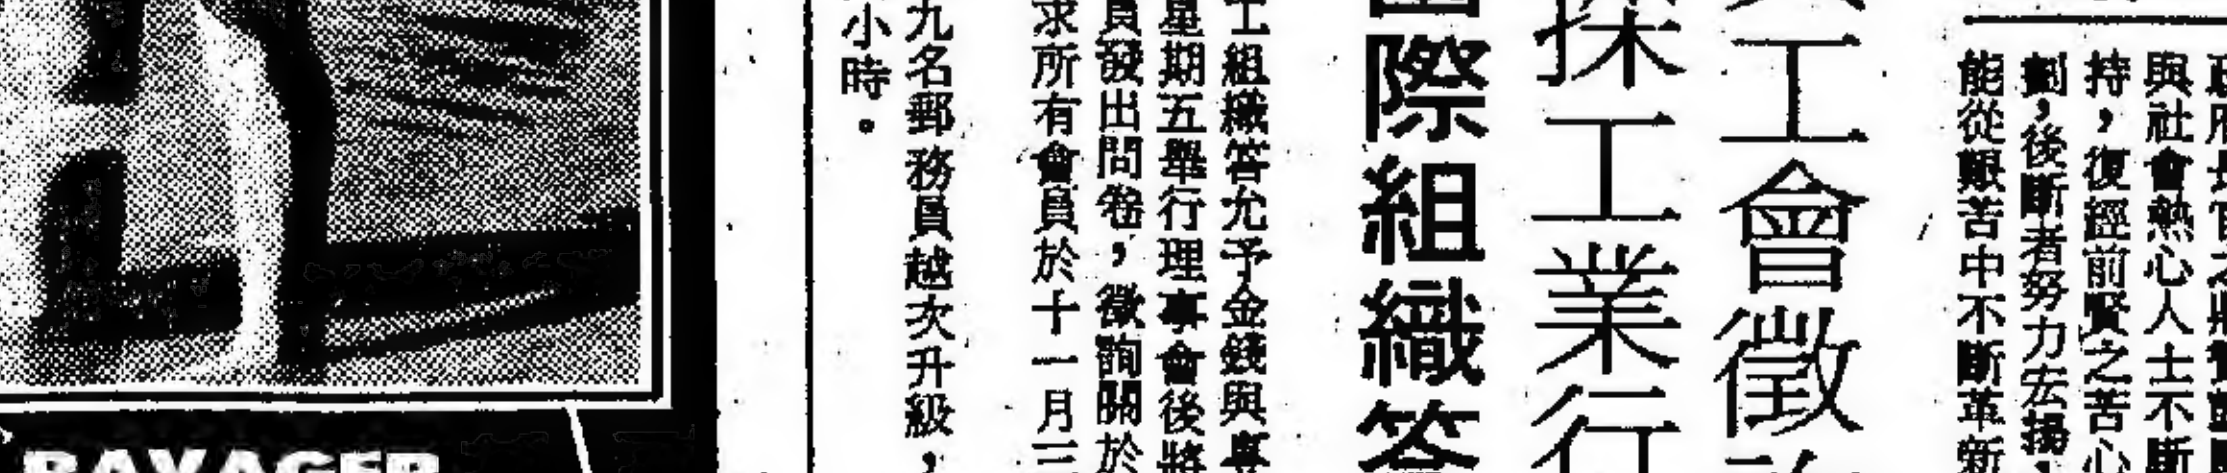 與社會熱心人士不斷
持，復經前賢之苦心
劃，後斷者努力宏揚，
能從艱苦中不斷革新
工會徵
採工業行
國際組織答
工組織答允予金錢與
星期五舉行理事會後將
員發出問卷，徵詢關於
求所有會員於十一月三
九名郵務員越次升級，
小時。
RAVAGER